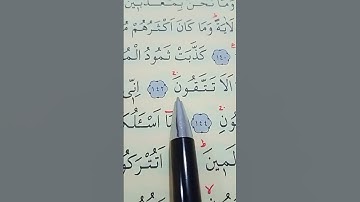 وَمَا نَحْنُ بِمُعَذَّبِينَ
لَاٰيَةً وَمَا كَانَ اَكْثَرُهُمْ مُ
١٤٠ كَذَّبَتْ ثَمُودُ الْمُ
اَلَا تَتَّقُونَ ١٤٢ اِنّ۪ي
ونِ ١٤٤ مَا اَسْـَٔلُكُ
لَم۪ينَ اَتُتْرَكُو